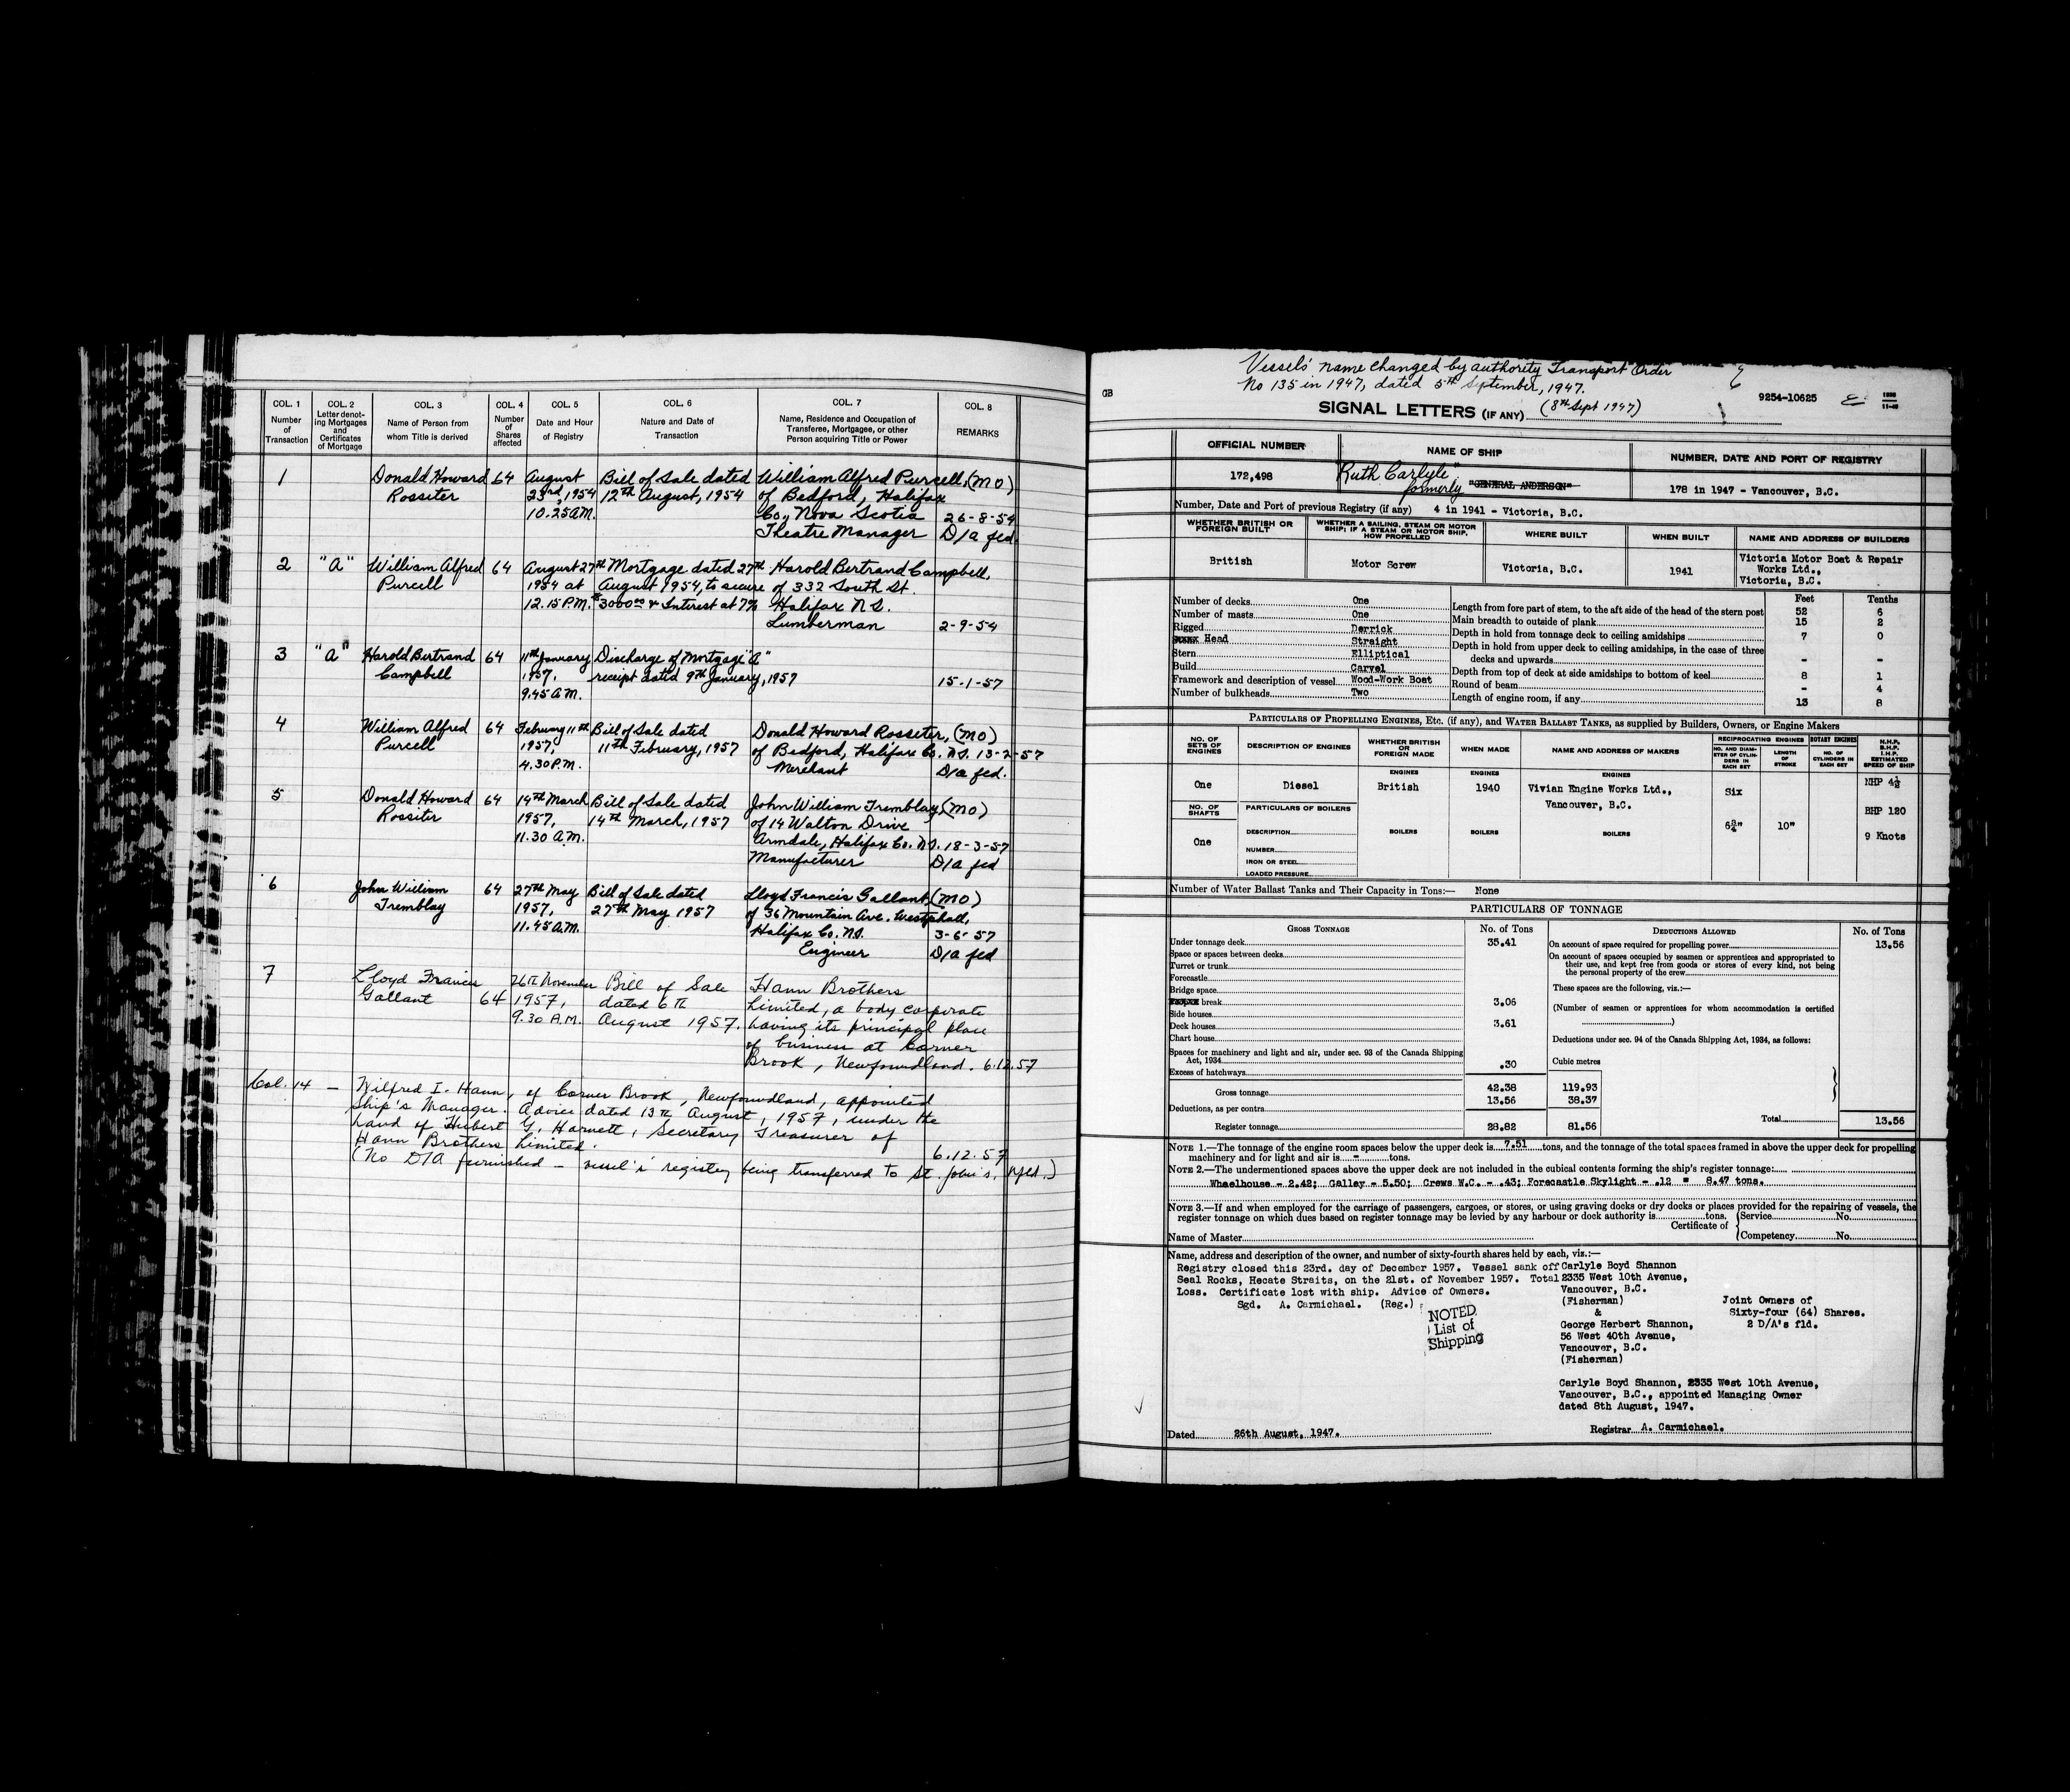 COL. 1 COL. 2 COL. 3 COL. 4 COL. 5 COL. 6 COL. 7 COL. 8
Number of Transaction
Letter denoting Mortgages and Certificates of Mortgage
Name of Person from whom Title is derived
Number of Shares affected
Date and Hour of Registry
Nature and Date of Transaction
Name, Residence and Occupation of Transferee, Mortgagee, or other Person acquiring Title or Power
REMARKS
1 Donald Howard 64 August Bill of Sale dated William Alfred Purcell, (MO)
Rossiter 23rd, 1954 12th August, 1954 of Bedford, Halifax
10.25 A.M. Co., Nova Scotia 26-8-54
Theatre Manager D/a fed.
2 "A" William Alfred 64 August 27th Mortgage dated 27th Harold Bertrand Campbell,
Purcell 1954 at August 1954, to secure of 332 South St.
12.15 P.M. $3000.00 & Interest at 7% Halifax N.S.
Lumberman 2-9-54
3 "A" Harold Bertrand 64 11th January Discharge of Mortgage "A"
Campbell 1957, receipt dated 9th January, 1957
9.45 A.M. 15-1-57
4 William Alfred 64 February 11th Bill of Sale dated Donald Howard Rossiter, (MO)
Purcell 1957, 11th February, 1957 of Bedford, Halifax Co. N.S. 13-2-57
4.30 P.M. Merchant D/a fed.
5 Donald Howard 64 14th March Bill of Sale dated John William Tremblay, (MO)
Rossiter 1957, 14th March, 1957 of 14 Walton Drive
11.30 A.M. Armdale, Halifax Co. N.S. 18-3-57
Manufacturer D/a fed
6 John William 64 27th May Bill of Sale dated Lloyd Francis Gallant, (MO)
Tremblay 1957, 27th May 1957 of 36 Mountain Ave. Westphall,
11.45 A.M. Halifax Co. N.S. 3-6-57
Engineer D/a fed
7 Lloyd Francis 26th November Bill of Sale Hann Brothers
Gallant 64 1957, dated 6th Limited, a body corporate
9.30 A.M. August 1957. having its principal place
of business at Corner
Brook, Newfoundland. 6.12.57
Col. 14 — Wilfred I. Hann, of Corner Brook, Newfoundland, appointed
Ship's Manager. Advice dated 13th August, 1957, under the
hand of Hubert G. Harnett, Secretary Treasurer of
Hann Brothers Limited. 6.12.57
(No D/A furnished — vessel's registry being transferred to St. John's, Nfld.)
Vessels' name changed by authority Transport Order
No 135 in 1947, dated 5th September, 1947.
GB
9254-10625
SIGNAL LETTERS (IF ANY) (8th Sept 1947)
OFFICIAL NUMBER NAME OF SHIP NUMBER, DATE AND PORT OF REGISTRY
172,498 "Ruth Carlyle"
formerly "GENERAL ANDERSON" 178 in 1947 - Vancouver, B.C.
Number, Date and Port of previous Registry (if any) 4 in 1941 - Victoria, B.C.
WHETHER BRITISH OR FOREIGN BUILT
WHETHER A SAILING, STEAM OR MOTOR SHIP; IF A STEAM OR MOTOR SHIP, HOW PROPELLED
WHERE BUILT WHEN BUILT NAME AND ADDRESS OF BUILDERS
British Motor Screw Victoria, B.C. 1941 Victoria Motor Boat & Repair
Works Ltd.,
Victoria, B.C.
Feet Tenths
Number of decks One
Number of masts One
Rigged Derrick
Head Straight
Stern Elliptical
Build Carvel
Framework and description of vessel Wood-Work Boat
Number of bulkheads Two
Length from fore part of stem, to the aft side of the head of the stern post 52 6
Main breadth to outside of plank 15 2
Depth in hold from tonnage deck to ceiling amidships 7 0
Depth in hold from upper deck to ceiling amidships, in the case of three
decks and upwards - -
Depth from top of deck at side amidships to bottom of keel 8 1
Round of beam - 4
Length of engine room, if any 13 8
PARTICULARS OF PROPELLING ENGINES, ETC. (if any), and WATER BALLAST TANKS, as supplied by Builders, Owners, or Engine Makers
NO. OF SETS OF ENGINES
DESCRIPTION OF ENGINES
WHETHER BRITISH OR FOREIGN MADE
WHEN MADE
NAME AND ADDRESS OF MAKERS
RECIPROCATING ENGINES
NO. AND DIAMETER OF CYLINDERS IN EACH SET
LENGTH OF STROKE
ROTARY ENGINES
NO. OF CYLINDERS IN EACH SET
N.H.P. B.H.P. I.H.P. ESTIMATED SPEED OF SHIP
ENGINES ENGINES ENGINES
One Diesel British 1940 Vivian Engine Works Ltd., Six NHP 4½
Vancouver, B.C. BHP 120
6¾" 10" 9 Knots
NO. OF SHAFTS
One
PARTICULARS OF BOILERS
DESCRIPTION BOILERS BOILERS BOILERS
NUMBER
IRON OR STEEL
LOADED PRESSURE
Number of Water Ballast Tanks and Their Capacity in Tons:— None
PARTICULARS OF TONNAGE
GROSS TONNAGE No. of Tons DEDUCTIONS ALLOWED No. of Tons
Under tonnage deck 35.41
Space or spaces between decks
Turret or trunk
Forecastle
Bridge space
break 3.06
Side houses
Deck houses 3.61
Chart house
Spaces for machinery and light and air, under sec. 93 of the Canada Shipping
Act, 1934
Excess of hatchways .30 Cubic metres
Gross tonnage 42.38 119.93
Deductions, as per contra 13.56 38.37
Register tonnage 28.82 81.56
On account of space required for propelling power 13.56
On account of spaces occupied by seamen or apprentices and appropriated to
their use, and kept free from goods or stores of every kind, not being
the personal property of the crew
These spaces are the following, viz.:—
(Number of seamen or apprentices for whom accommodation is certified
)
Deductions under sec. 94 of the Canada Shipping Act, 1934, as follows:
Total 13.56
NOTE 1.—The tonnage of the engine room spaces below the upper deck is 7.51 tons, and the tonnage of the total spaces framed in above the upper deck for propelling
machinery and for light and air is - tons.
NOTE 2.—The undermentioned spaces above the upper deck are not included in the cubical contents forming the ship's register tonnage:
Wheelhouse - 2.42; Galley - 5.50; Crews W.C. - .43; Forecastle Skylight - .12 = 8.47 tons.
NOTE 3.—If and when employed for the carriage of passengers, cargoes, or stores, or using graving docks or dry docks or places provided for the repairing of vessels, the
register tonnage on which dues based on register tonnage may be levied by any harbour or dock authority is tons.
Certificate of Service No.
Competency No.
Name of Master
Name, address and description of the owner, and number of sixty-fourth shares held by each, viz.:—
Registry closed this 23rd. day of December 1957. Vessel sank off
Seal Rocks, Hecate Straits, on the 21st. of November 1957. Total
Loss. Certificate lost with ship. Advice of Owners.
Sgd. A. Carmichael. (Reg.)
NOTED
List of
Shipping
Carlyle Boyd Shannon
2335 West 10th Avenue,
Vancouver, B.C.
(Fisherman)
&
George Herbert Shannon,
56 West 40th Avenue,
Vancouver, B.C.
(Fisherman)
Joint Owners of
Sixty-four (64) Shares.
2 D/A's fld.
Carlyle Boyd Shannon, 2335 West 10th Avenue,
Vancouver, B.C., appointed Managing Owner
dated 8th August, 1947.
Dated 26th August, 1947. Registrar A. Carmichael.